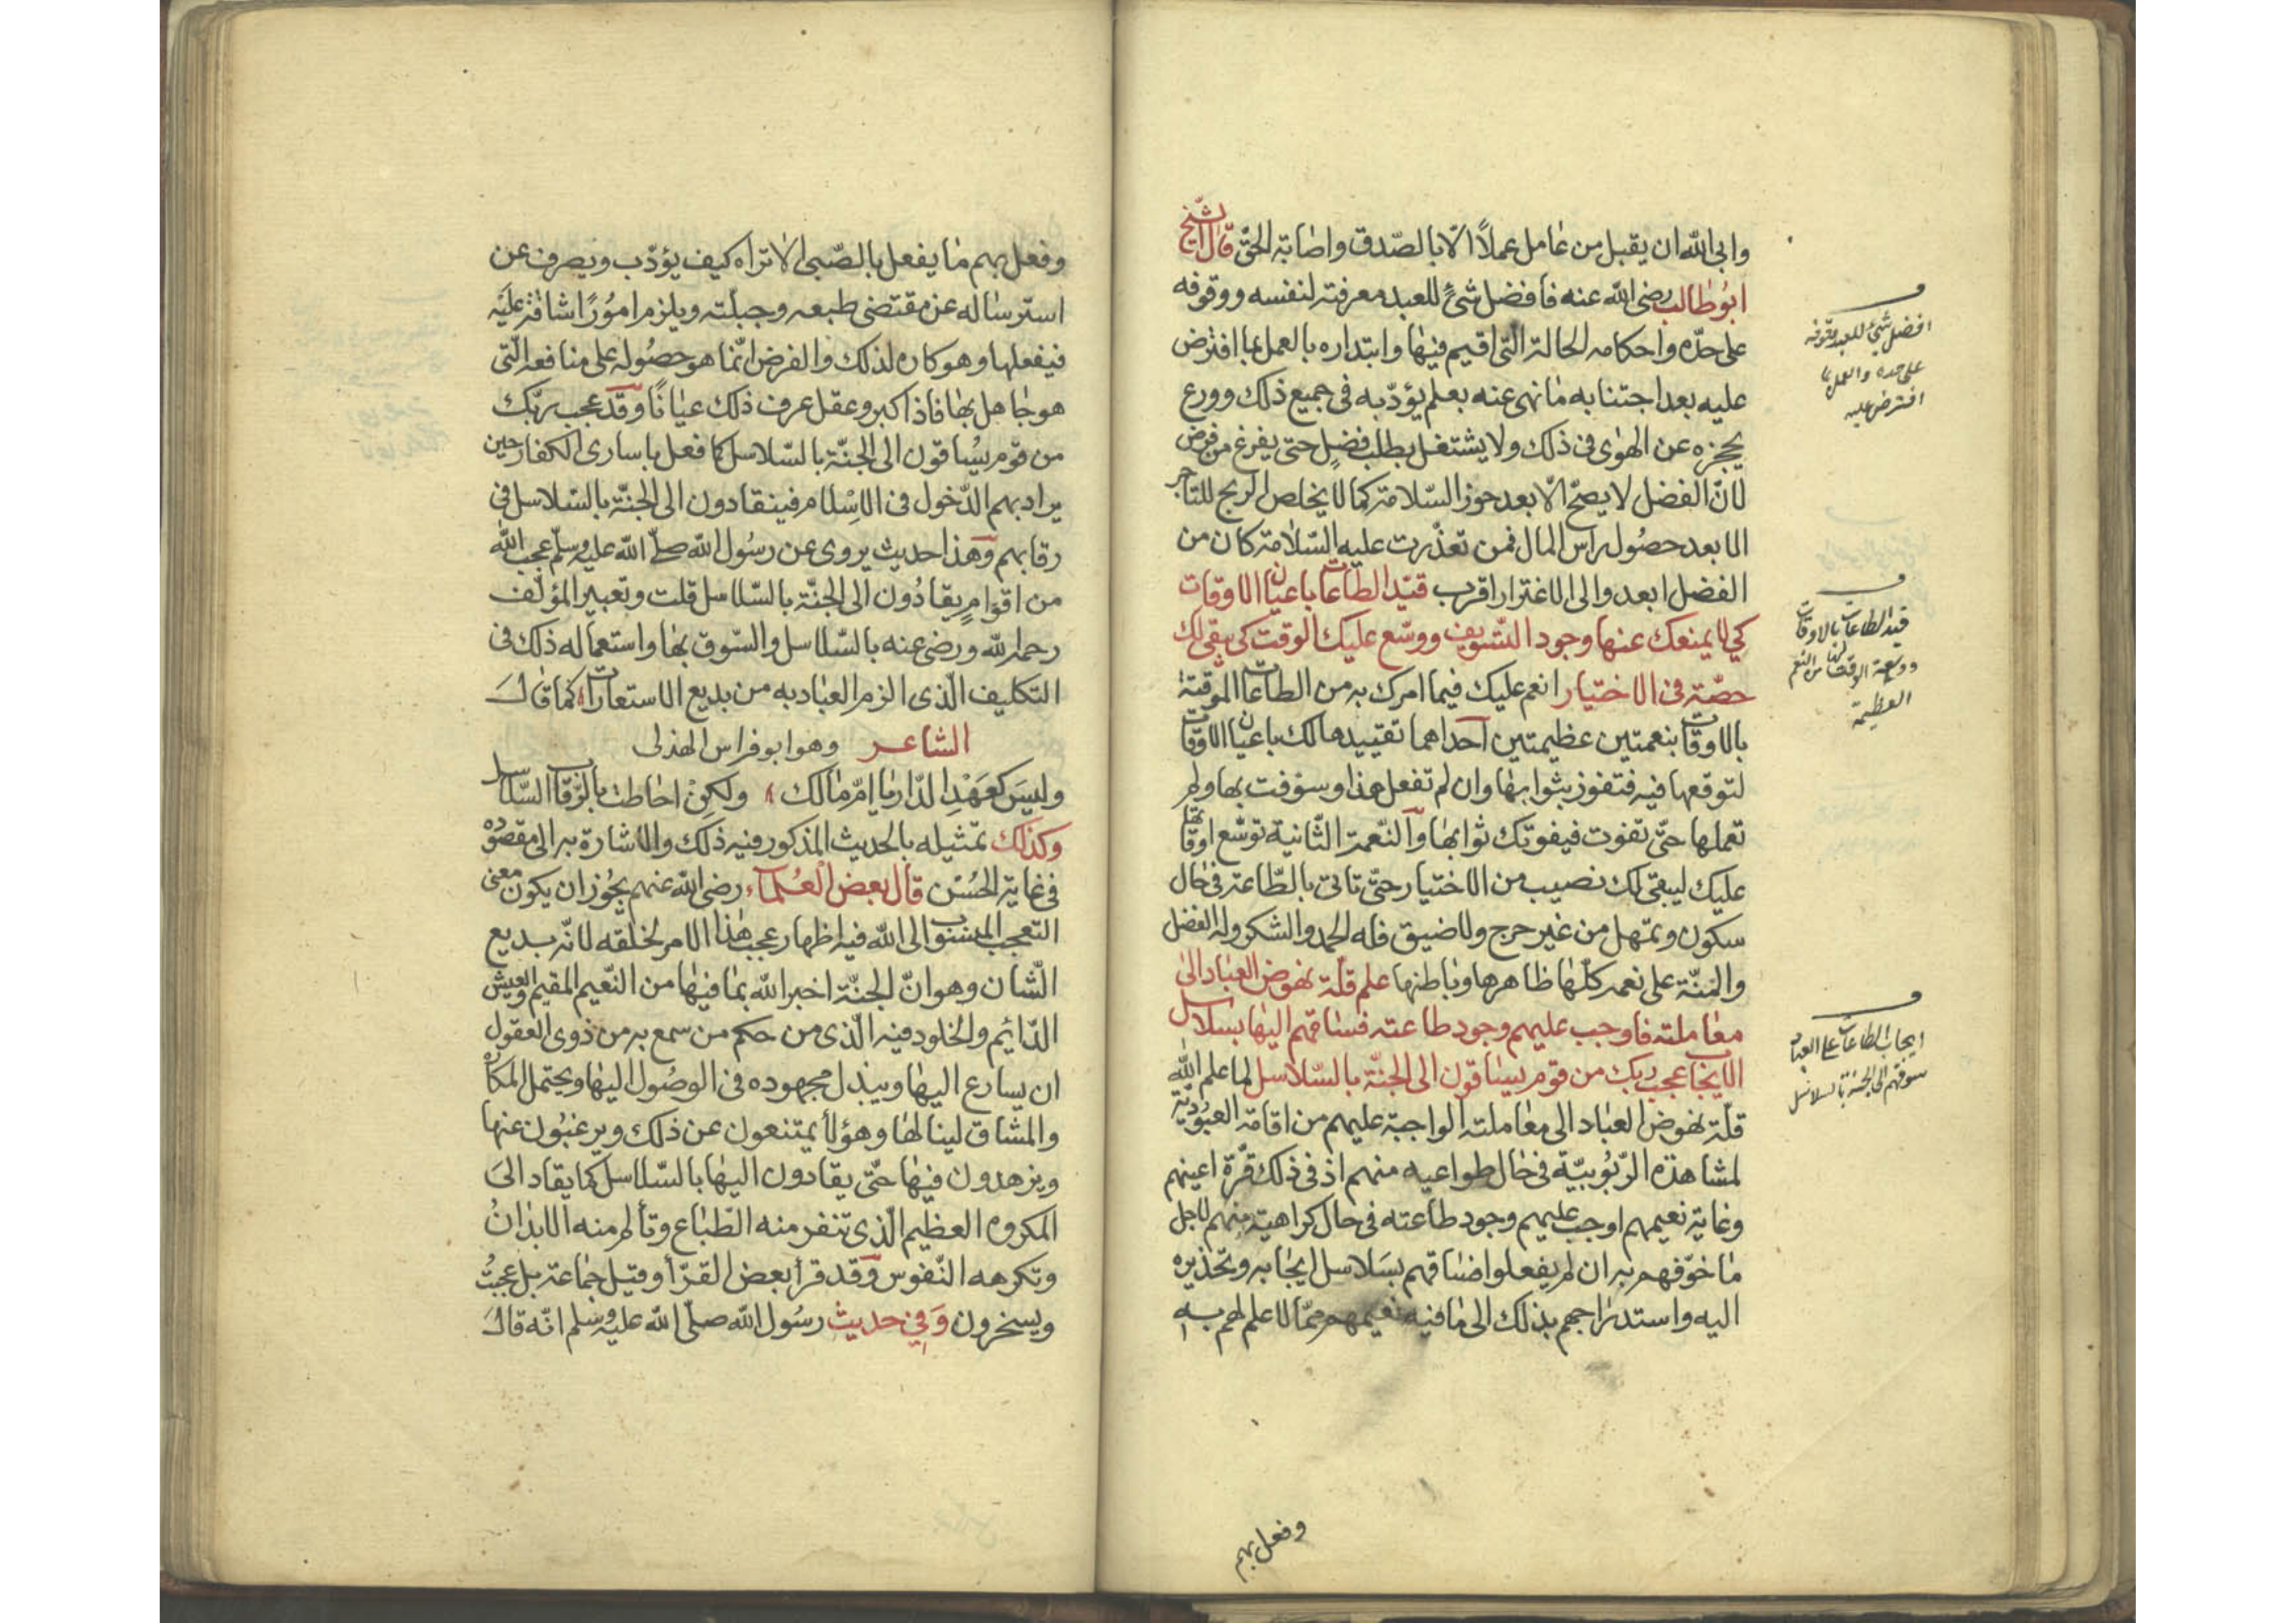 وابى الله ان يقبل من عامل عملاً الّا بالصّدق واصابة الحقّ قال الشّيخ
ابوطالب رضى الله عنه فافضل شئ للعبد معرفته لنفسه ووقوفه
على حدّه واحكامه لحالة الّتى اقيم فيها وابتداره بالعمل بما افترض
عليه بعد اجتنابه ما نهى عنه بعلم يؤدّبه فى جميع ذلك وورع
يحجزه عن الهوى فى ذلك ولا يشتغل بطلب فضل حتى يفرغ من فرض
لانّ الفضل لا يصحّ الّا بعد حوز السّلامة كما لا يخلص الربح للتاجر
الا بعد حصول راس المال فمن تعذّرت عليه السّلامة كان من
الفضل ابعد والى الاغترار اقرب قيّد الطاعات باعيان الاوقات
كى لا يمنعك عنها وجود التّسويف ووسّع عليك الوقت كى يبقى لك
حصّة فى الاختيار انعم عليك فيما امرك به من الطاعات الموقتة
بالاوقات بنعمتين عظيمتين احداهما تقييدها لك باعيان الاوقات
لتوقعها فيه فتفوز بثوابها وان لم تفعل هذا وسوّفت بها ولم
تعملها حتّى تفوت فيفوتك ثوابها والنّعمة الثّانية توسّع اوقاتها
عليك ليبقى لك نصيب من الاختيار حتّى تاتى بالطّاعة فى حال
سكون وتمهل من غير حرج ولا ضيق فله الحمد والشكر وله الفضل
والمنّة على نعمه كلّها ظاهرها وباطنها علم قلّة نهوض العباد الى
معاملته فاوجب عليهم وجود طاعته فساقهم اليها بسلاسل
الايجاب عجب ربك من قوم يساقون الى الجنّة بالسّلاسل لما علم الله
قلّة نهوض العباد الى معاملته الواجبة عليهم من اقامة العبوديّة
لمشاهدة الرّبوبيّة فى حال طواعيه منهم اذ فى ذلك قرّة اعينهم
وغاية نعيمهم اوجب عليهم وجود طاعته فى حال كراهية منهم لاجل
ما خوّفهم به ان لم يفعلوا فساقهم بسلاسل ايجابه وتحذيره
اليه واستدراجهم بذلك الى ما فيه نعيمهم ممّا لا علم لهم به
وفعل بهم
افضل شئ للعبد وقوفه
على حده والعمل بما
افترض عليه
قيد الطاعات بالاوقات
ووسعة الوقت لها من النعم
العظيمة
ايجاب الطاعات على العباد
سوقهم الى الجنة بالسلاسل
وفعل بهم ما يفعل بالصّبى الا تراه كيف يؤدّب ويصرف عن
استرساله عن مقتضى طبعه وجبلّته ويلزم امورًا شاقّة عليه
فيفعلها وهو كاره لذلك والفرض انّما هو حصوله على منافعه الّتى
هو جاهل بها فاذا كبر وعقل عرف ذلك عيانًا وقد عجب ربّك
من قوم يساقون الى الجنّة بالسّلاسل كما فعل باسارى الكفار حين
يراد بهم الدّخول فى الاسلام فينقادون الى الجنّة بالسّلاسل فى
رقابهم وهذا حديث يروى عن رسول الله صلّى الله عليه وسلّم عجب الله
من اقوامٍ يقادون الى الجنّة بالسّلاسل قلت وتعبير المؤلّف
رحمه الله ورضى عنه بالسّلاسل والسّوق بها واستعماله ذلك فى
التكليف الّذى الزم العباد به من بديع الاستعارات كما قال
الشاعر وهو ابوفراس الهذلى
وليس كعهد الدّار يا امّ مالك ولكن احاطت بالرّقاب السّلاسل
وكذلك تمثيله بالحديث المذكور فيه ذلك والاشارة به الى مقصوده
فى غاية الحسن قال بعض العلماء رضى الله عنهم يجوز ان يكون معنى
التعجب المنسوب الى الله فيه اظهار عجب هذا الامر لخلقه لانّه بديع
الشّان وهو انّ الجنّة اخبر الله بما فيها من النّعيم المقيم والعيش
الدّائيم والخلود فيه الّذى من حكم من سمع به من ذوى العقول
ان يسارع اليها ويبذل مجهوده فى الوصول اليها ويحتمل المكاره
والمشاق لينالها وهؤلا يمتنعون عن ذلك ويرغبون عنها
ويزهدون فيها حتّى يقادون اليها بالسّلاسل كما يقاد الى
المكروه العظيم الّذى تنفر منه الطّباع وتألم منه الابدان
وتكرهه النّفوس وقد قرأ بعض القرّأ وقيل جماعة بل عجبت
ويسخرون وفى حديث رسول الله صلّى الله عليه وسلم انّه قال